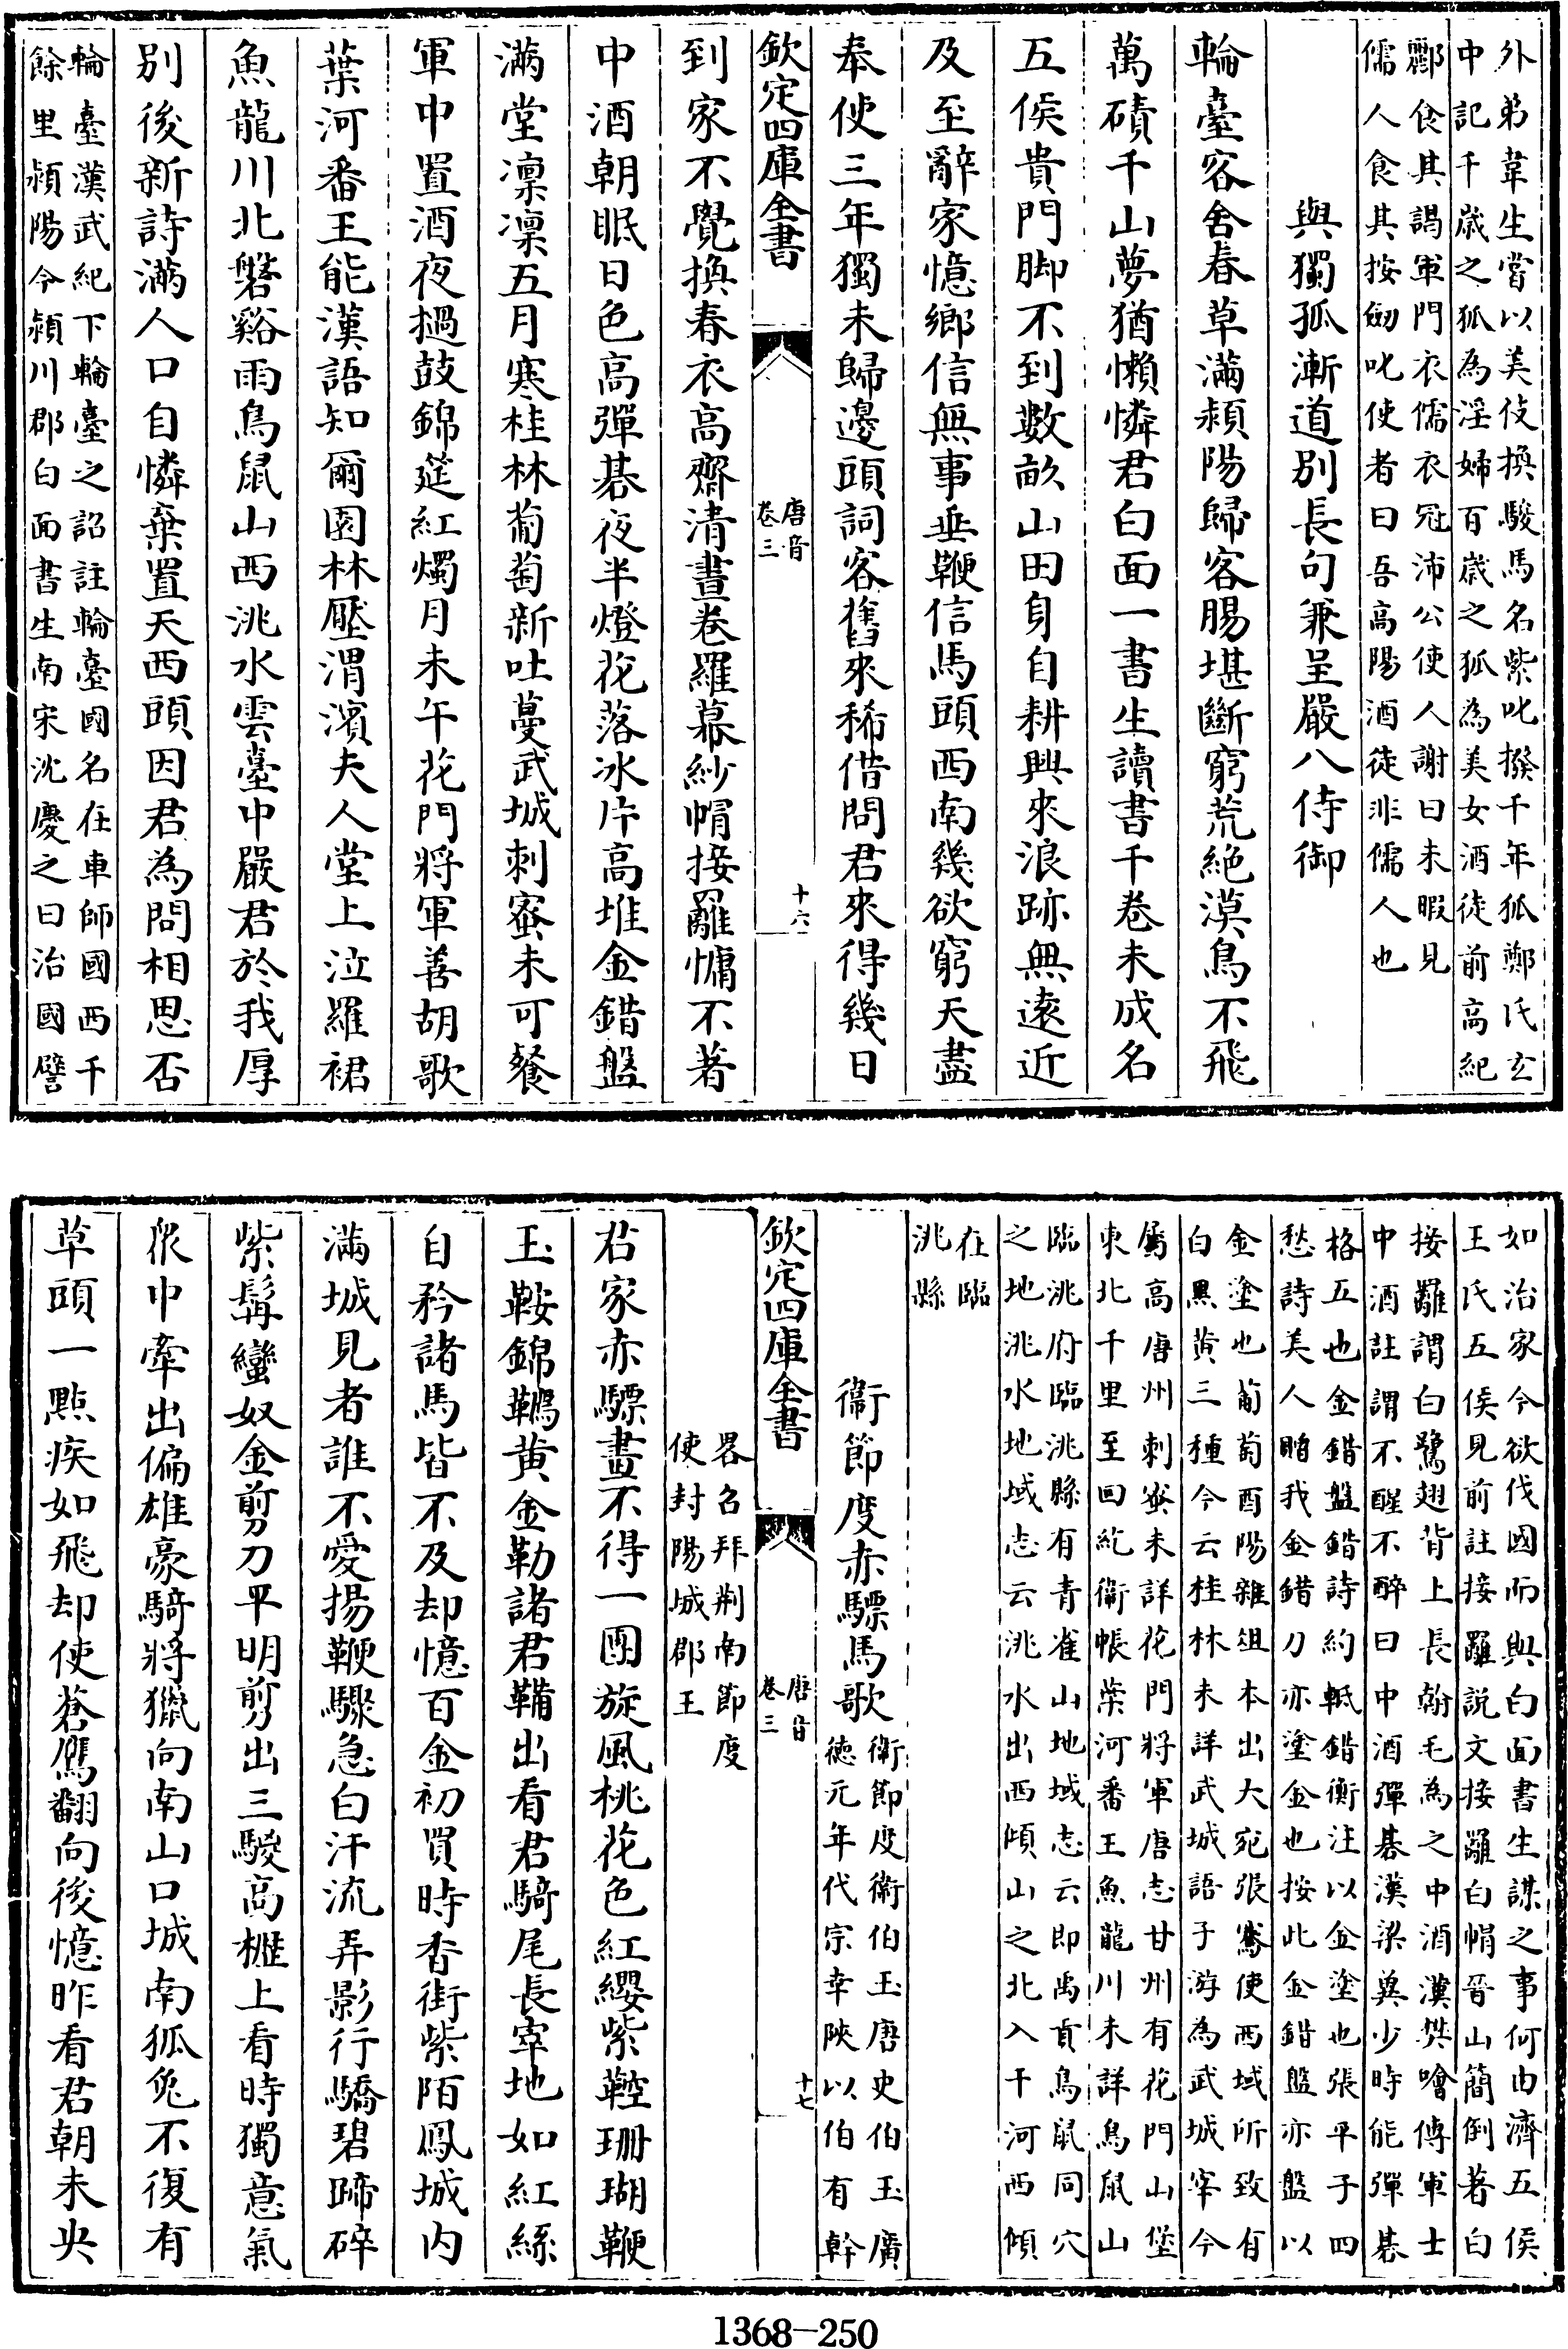 外弟韋生嘗以美伎換駿馬名紫叱撥千年狐鄭氏玄
中記千歲之狐為淫婦百歲之狐為美女酒徒前高紀
酈食其謁軍門衣儒衣冠沛公使人謝曰未暇見
儒人食其按劒叱使者曰吾高陽酒徒非儒人也
與獨孤漸道別長句兼呈嚴八侍御
輪臺客舍春草滿潁陽歸客腸堪斷窮荒絕漠鳥不飛
萬磧千山夢猶懶憐君白面一書生讀書千卷未成名
五侯貴門脚不到數畝山田身自耕興來浪跡無遠近
及至辭家憶鄉信無事垂鞭信馬頭西南幾欲窮天盡
奉使三年獨未歸邊頭詞客舊來稀借問君來得幾日
欽定四庫全書
唐音
卷三
十六
到家不覺換春衣高齋清晝卷羅幕紗帽接䍦慵不著
中酒朝眠日色高彈碁夜半燈花落冰片高堆金錯盤
滿堂凛凛五月寒桂林葡萄新吐蔓武城刺蜜未可餐
軍中置酒夜撾鼓錦筵紅燭月未午花門將軍善胡歌
葉河番王能漢語知爾園林壓渭濱夫人堂上泣羅裙
魚龍川北磐谿雨鳥鼠山西洮水雲臺中嚴君於我厚
別後新詩滿人口自憐棄置天西頭因君為問相思否
輪臺漢武紀下輪臺之詔註輪臺國名在車師國西千
餘里潁陽今潁川郡白面書生南宋沈慶之曰治國譬
如治家今欲伐國而與白面書生謀之事何由濟五侯
王氏五侯見前註接䍦說文接䍦白帽晉山簡倒著白
接䍦謂白鷺翅背上長翰毛為之中酒漢樊噲傳軍士
中酒註謂不醒不醉曰中酒彈碁漢梁冀少時能彈碁
格五也金錯盤錯詩約軧錯衡注以金塗也張平子四
愁詩美人贈我金錯刀亦塗金也按此金錯盤亦盤以
金塗也葡萄酉陽雜俎本出大宛張騫使西域所致有
白黑黃三種今云桂林未詳武城語子游為武城宰今
屬高唐州刺蜜未詳花門將軍唐志甘州有花門山堡
東北千里至回紇衙帳葉河番王魚龍川未詳鳥鼠山
臨洮府臨洮縣有青雀山地域志云即禹貢鳥鼠同穴
之地洮水地域志云洮水出西傾山之北入千河西傾
在臨
洮縣
衞節度赤驃馬歌
衛節度衛伯玉唐史伯玉廣
德元年代宗幸陜以伯有幹
欽定四庫全書
唐音
卷三
十七
畧召拜荆南節度
使封陽城郡王
君家赤驃畫不得一團旋風桃花色紅纓紫鞚珊瑚鞭
玉鞍錦韉黄金勒諸君鞴出看君騎尾長窣地如紅絲
自矜諸馬皆不及却憶百金初買時香街紫陌鳳城内
滿城見者誰不愛揚鞭驟急白汗流弄影行驕碧蹄碎
紫髯蠻奴金剪刀平明剪出三騣高櫪上看時獨意氣
衆中牽出偏雄豪騎將獵向南山口城南狐兔不復有
草頭一點疾如飛却使蒼鷹翻向後憶昨看君朝未央
1368—250